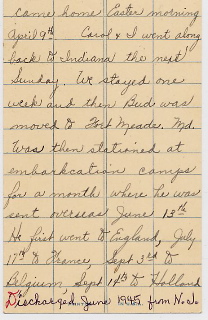 came home Easter morning
April 9th. Carol & I went along
back to Indiana the next
Sunday. We stayed one
week and then Bud was
moved to Fort Meade. Md.
Was then stationed at
embarkation camps
for a month where he was
sent overseas June 13th
He first went to England, July
17th to France, Sept 3rd to
Belgium, Sept 14th to Holland
Discharged, June 1945, from N.J.